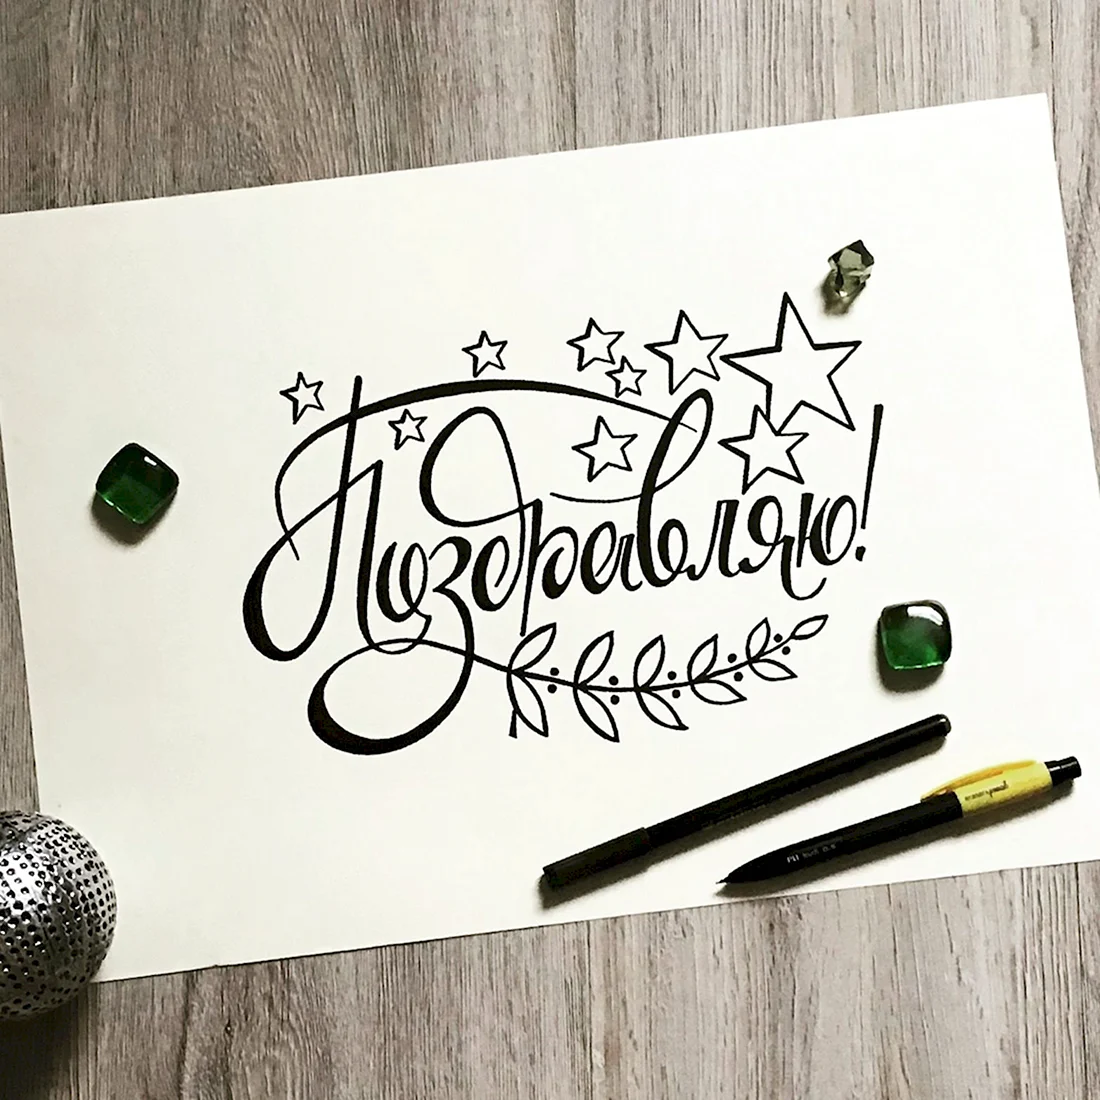 Поздравляю!